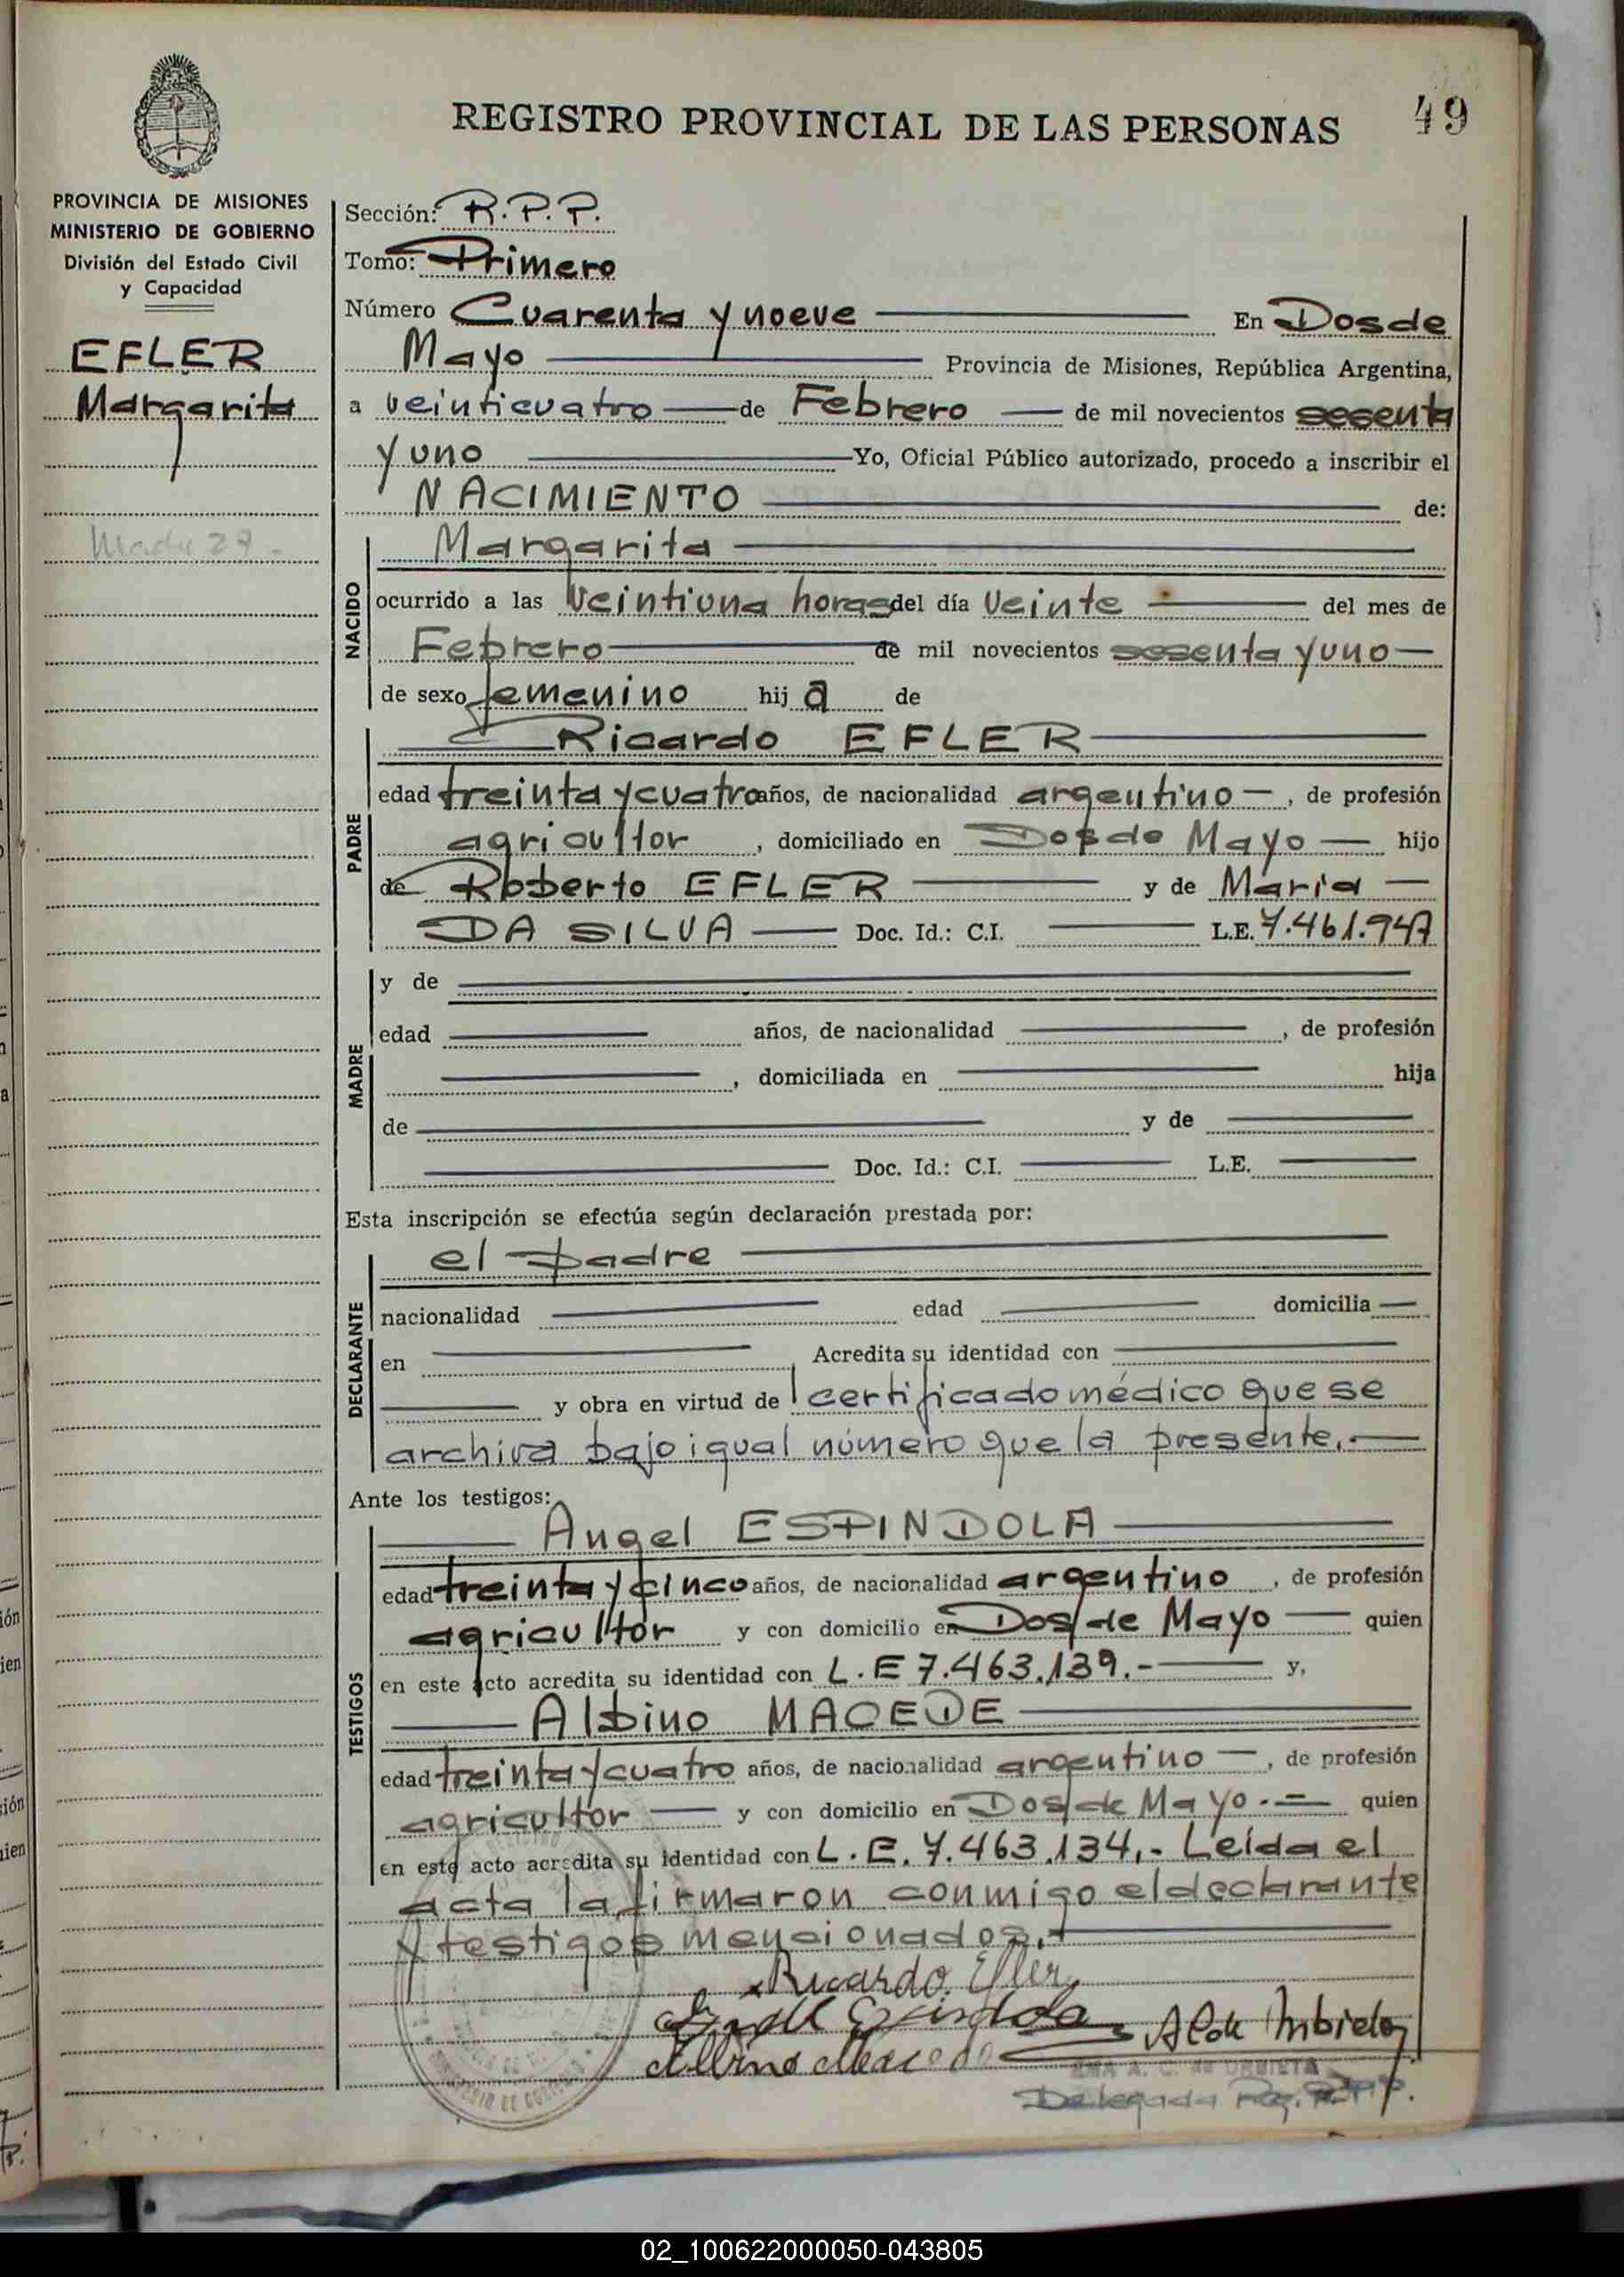 REGISTRO PROVINCIAL DE LAS PERSONAS
49
PROVINCIA DE MISIONES
MINISTERIO DE GOBIERNO
División del Estado Civil
y Capacidad
EFLER
Margarita
Sección: R.P.P.
Tomo: Primero
Número Cuarenta y nueve En Dos de
Mayo Provincia de Misiones, República Argentina,
a veinticuatro de Febrero de mil novecientos sesenta
y uno Yo, Oficial Público autorizado, procedo a inscribir el
NACIMIENTO de:
NACIDO
Margarita
ocurrido a las veintiuna horas del día veinte del mes de
Febrero de mil novecientos sesenta y uno
de sexo femenino hij a de
PADRE
Ricardo EFLER
edad treinta y cuatro años, de nacionalidad argentino, de profesión
agricultor, domiciliado en Dos de Mayo hijo
de Roberto EFLER y de Maria
DA SILVA Doc. Id.: C.I. L.E. 7.461.947
MADRE
y de
edad años, de nacionalidad , de profesión
, domiciliada en hija
de y de
Doc. Id.: C.I. L.E.
Esta inscripción se efectúa según declaración prestada por:
DECLARANTE
el padre
nacionalidad edad domicilia
en Acredita su identidad con
y obra en virtud de certificado médico que se
archiva bajo igual número que la presente.-
Ante los testigos:
TESTIGOS
Angel ESPINDOLA
edad treinta y cinco años, de nacionalidad argentino, de profesión
agricultor y con domicilio en Dos de Mayo quien
en este acto acredita su identidad con L.E 7.463.139.- y,
Albino MACEDE
edad treinta y cuatro años, de nacionalidad argentino, de profesión
agricultor y con domicilio en Dos de Mayo.- quien
en este acto acredita su identidad con L.E. 7.463.134.- Leída el
acta la firmaron conmigo el declarante
y testigos mencionados.
Ricardo Efler
Espindola
Albino
Delegada Reg.
02_100622000050-043805